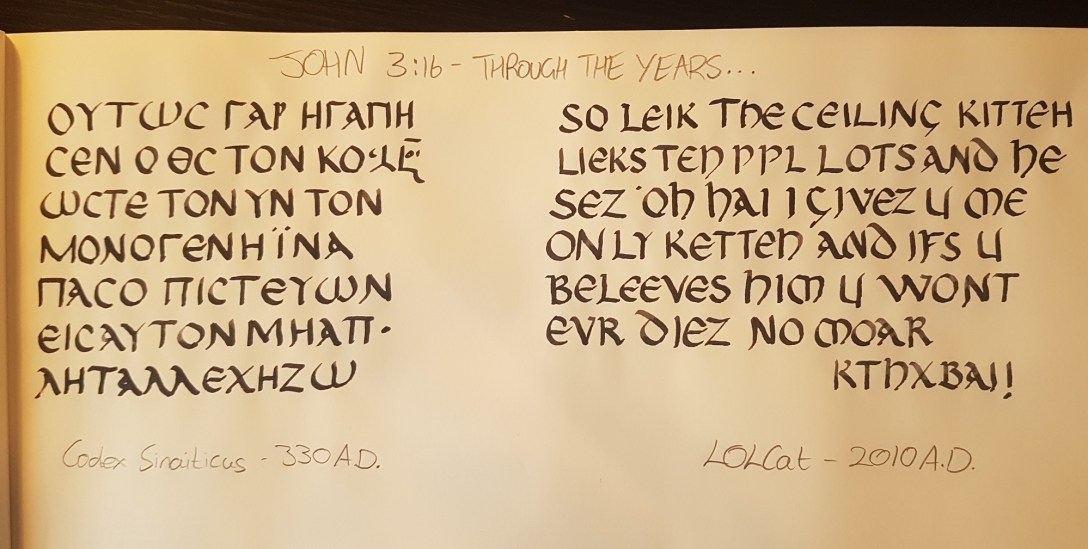 JOHN 3:16 - THROUGH THE YEARS...
ΟΥΤΩϹ ΓΑΡ ΗΓΑΠΗ
ϹΕΝ Ο ΘϹ ΤΟΝ
ΩϹΤΕ ΤΟΝ ΥΝ ΤΟΝ
ΜΟΝΟΓΕΝΗ ΪΝΑ
ΠΑϹ Ο ΠΙϹΤΕΥΩΝ
ΕΙϹ ΑΥΤΟΝ ΜΗ ΑΠ·
ΛΗΤΑΛΛΕΧΗΖΩ
Codex Sinaiticus - 330 A.D.
SO LEIK THE CEILING KITTEH
LIEKS TEH PPL LOTS AND HE
SEZ 'OH HAI I GIVEZ U ME
ONLY KETTEH AND IFS U
BELEEVES HIM U WONT
EVR DIEZ NO MOAR
KTHXBAI!
LOLCat - 2010 A.D.